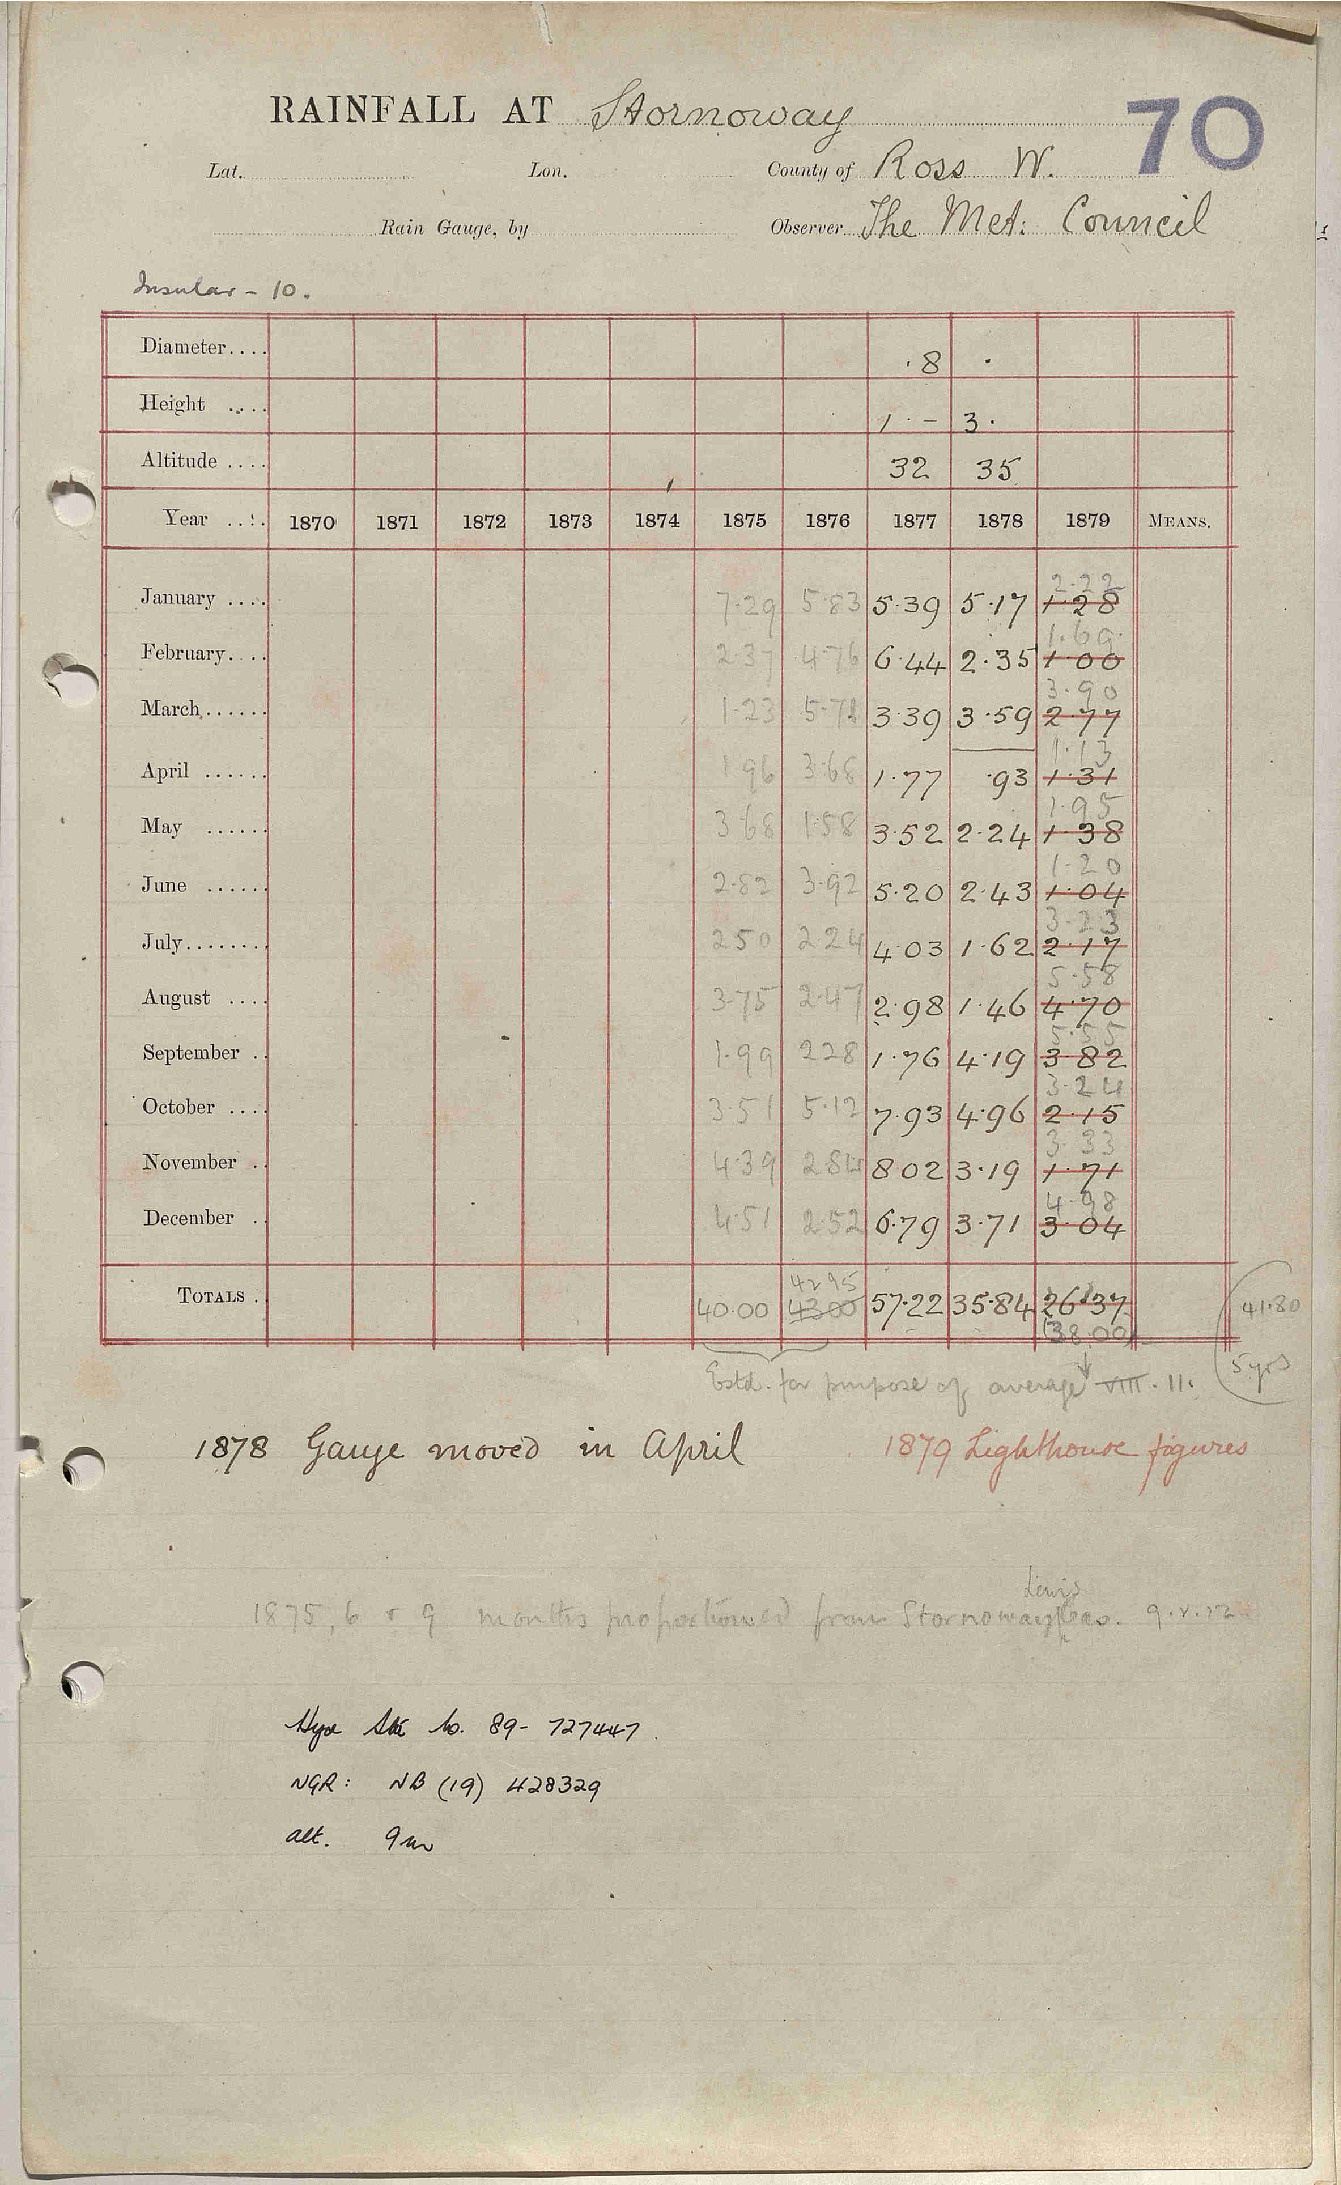 RAINFALL AT Stornoway 70
Lat. Lon. County of Ross W.
Rain Gauge, by Observer The Met: Council
Insular - 10.
Diameter.... .8 .
Height .... 1 - 3.
Altitude .... 32 35
Year .... 1870 1871 1872 1873 1874 1875 1876 1877 1878 1879 MEANS.
2.22
January .... 7.29 5.83 5.39 5.17 1.28
1.69
February.... 2.37 4.76 6.44 2.35 1.00
3.90
March...... 1.23 5.71 3.39 3.59 2.77
1.13
April ...... 1.96 3.68 1.77 .93 1.31
1.95
May ...... 3.68 1.58 3.52 2.24 1.38
1.20
June ...... 2.82 3.92 5.20 2.43 1.04
3.23
July........ 2.50 2.24 4.03 1.62 2.17
5.58
August .... 3.75 2.47 2.98 1.46 4.70
5.55
September .. 1.99 2.28 1.76 4.19 3.82
3.24
October .... 3.51 5.12 7.93 4.96 2.15
3.33
November .. 4.39 2.84 8.02 3.19 1.71
4.98
December .. 4.51 2.52 6.79 3.71 3.04
42.95
TOTALS . 40.00 43.00 57.22 35.84 26.37 41.80
(38.00)
Estd. for purpose of average VIII. 11. 5 yrs
1878 Gauge moved in April 1879 Lighthouse figures
Lewis
1875, 6 & 9 months proportioned from Stornoway 9.V.12
Stn No. 89- 727447
NGR: NB (19) 428329
alt. 9m